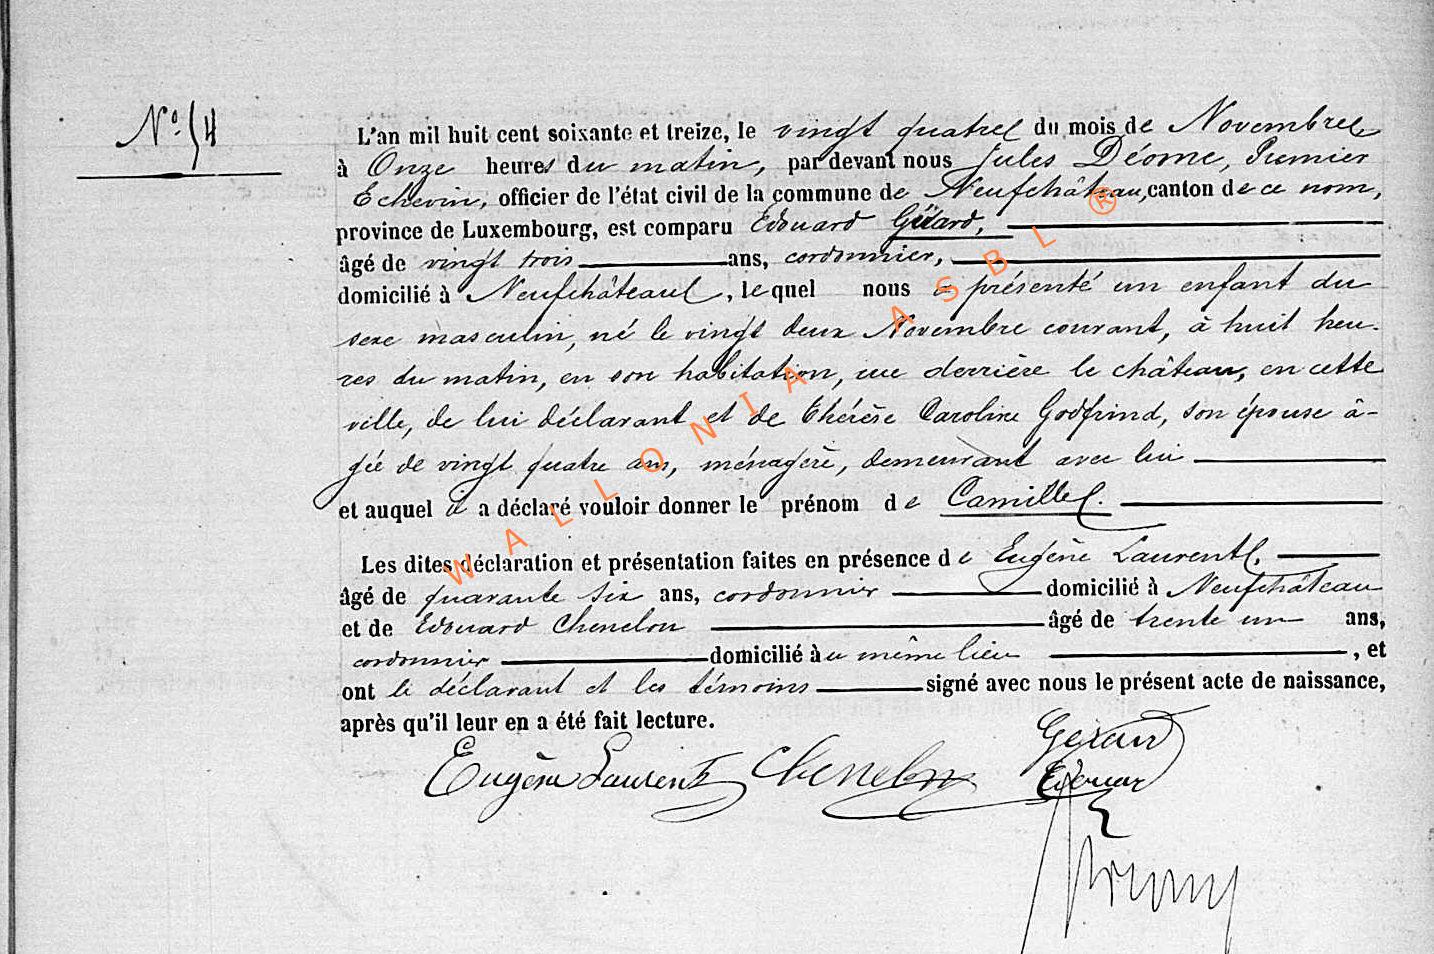 N° 54
L'an mil huit cent soixante et treize, le vingt quatre du mois de Novembre
à Onze heures du matin, par devant nous Jules Déome, Premier
Echevin, officier de l'état civil de la commune de Neufchâteau, canton de ce nom,
province de Luxembourg, est comparu Edouard Gérard,
âgé de vingt trois ans, cordonnier,
domicilié à Neufchâteau, lequel nous a présenté un enfant du
sexe masculin, né le vingt deux Novembre courant, à huit heu-
res du matin, en son habitation, rue derrière le château, en cette
ville, de lui déclarant et de Thérèse Caroline Godfrind, son épouse â-
gée de vingt quatre ans, ménagère, demeurant avec lui
et auquel il a déclaré vouloir donner le prénom de Camille.
Les dites déclaration et présentation faites en présence de Eugène Laurent,
âgé de quarante six ans, cordonnier domicilié à Neufchâteau
et de Edouard Chenelon âgé de trente un ans,
cordonnier domicilié à u même lieu , et
ont le déclarant et les témoins signé avec nous le présent acte de naissance,
après qu'il leur en a été fait lecture.
Eugène Laurent Chenelon Gérard
Edouar
WALLONIA ASBL ®